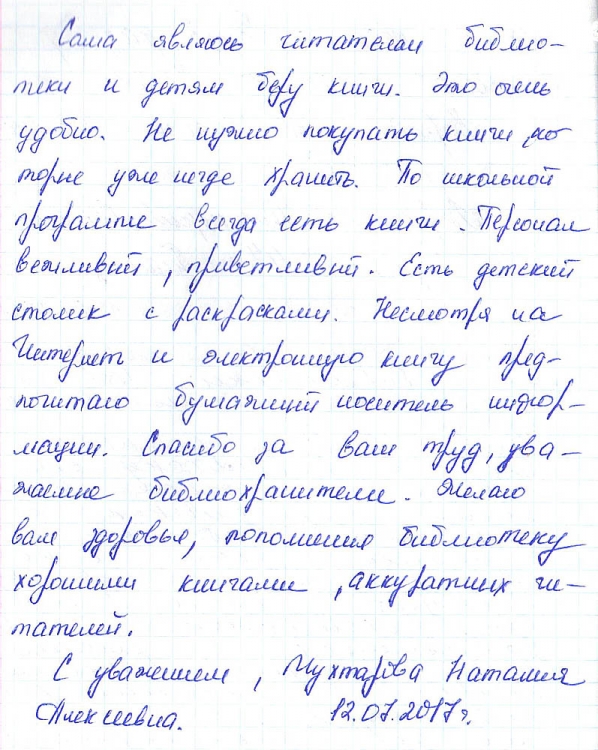 Сама являюсь читателем библио-
теки и детям беру книги. Это очень
удобно. Не нужно покупать книги, ко
торые уже негде хранить. По школьной
программе всегда есть книги. Персонал
вежливый, приветливый. Есть детский
столик с раскрасками. Несмотря на
Интернет и электронную книгу пред-
почитаю бумажный носитель инфор-
мации. Спасибо за ваш труд, ува-
жаемые библиохранители. Желаю
вам здоровья, пополнения библиотеку
хорошими книгами, аккуратных чи-
тателей.
С уважением, Мухтарова Наталия
Алексеевна. 12.07.2017г.